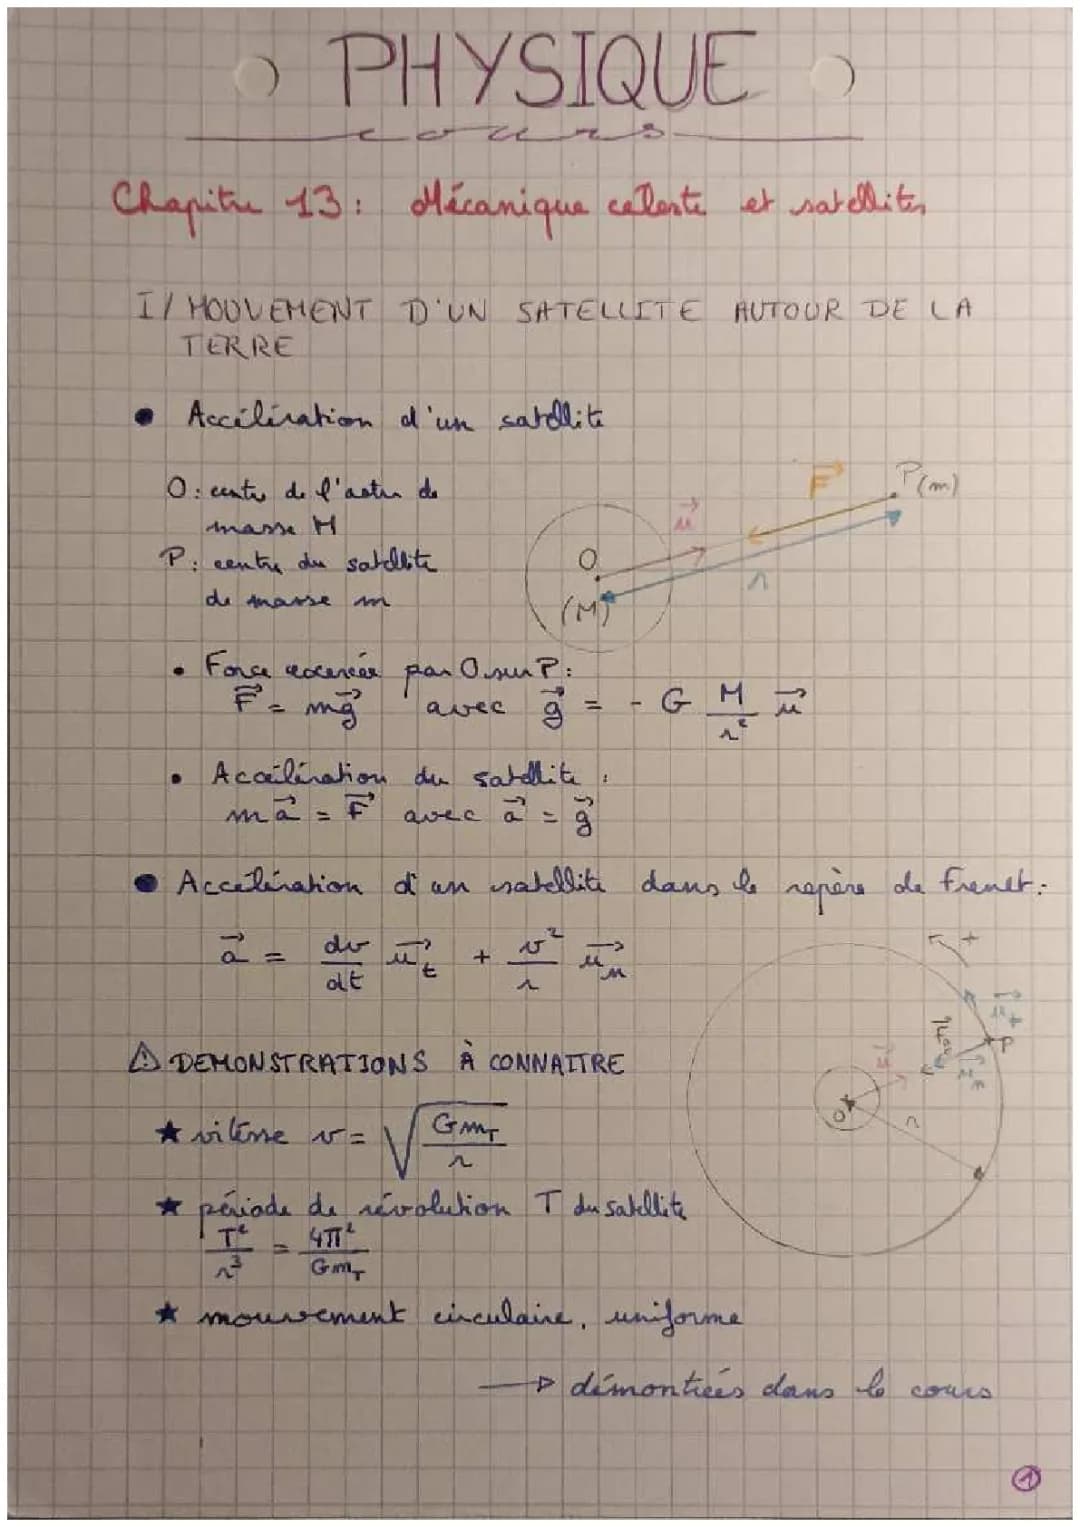 PHYSIQUE
cours
Chapitre 13: Mécanique céleste et satellites
I/ MOUVEMENT D'UN SATELLITE AUTOUR DE LA
TERRE
• Accélération d'un satellite
O: centre de l'astre de
masse M
P: centre du satellite
de masse m
O
(M)
u⃗
F⃗
P(m)
r
• Force exercée par O sur P:
F⃗ = mg⃗ avec g⃗ = - G M/r² u⃗
• Accélération du satellite :
ma⃗ = F⃗ avec a⃗ = g⃗
• Accélération d'un satellite dans le repère de Frenet:
a⃗ = dv/dt u⃗t + v²/r u⃗n
+
u⃗t
P
u⃗n
u⃗
O
r
⚠ DEMONSTRATIONS À CONNAITRE
★ vitesse v = √(GmT/r)
★ période de révolution T du satellite
T²/r³ = 4π²/GmT
★ mouvement circulaire, uniforme
→ démontrées dans le cours
1